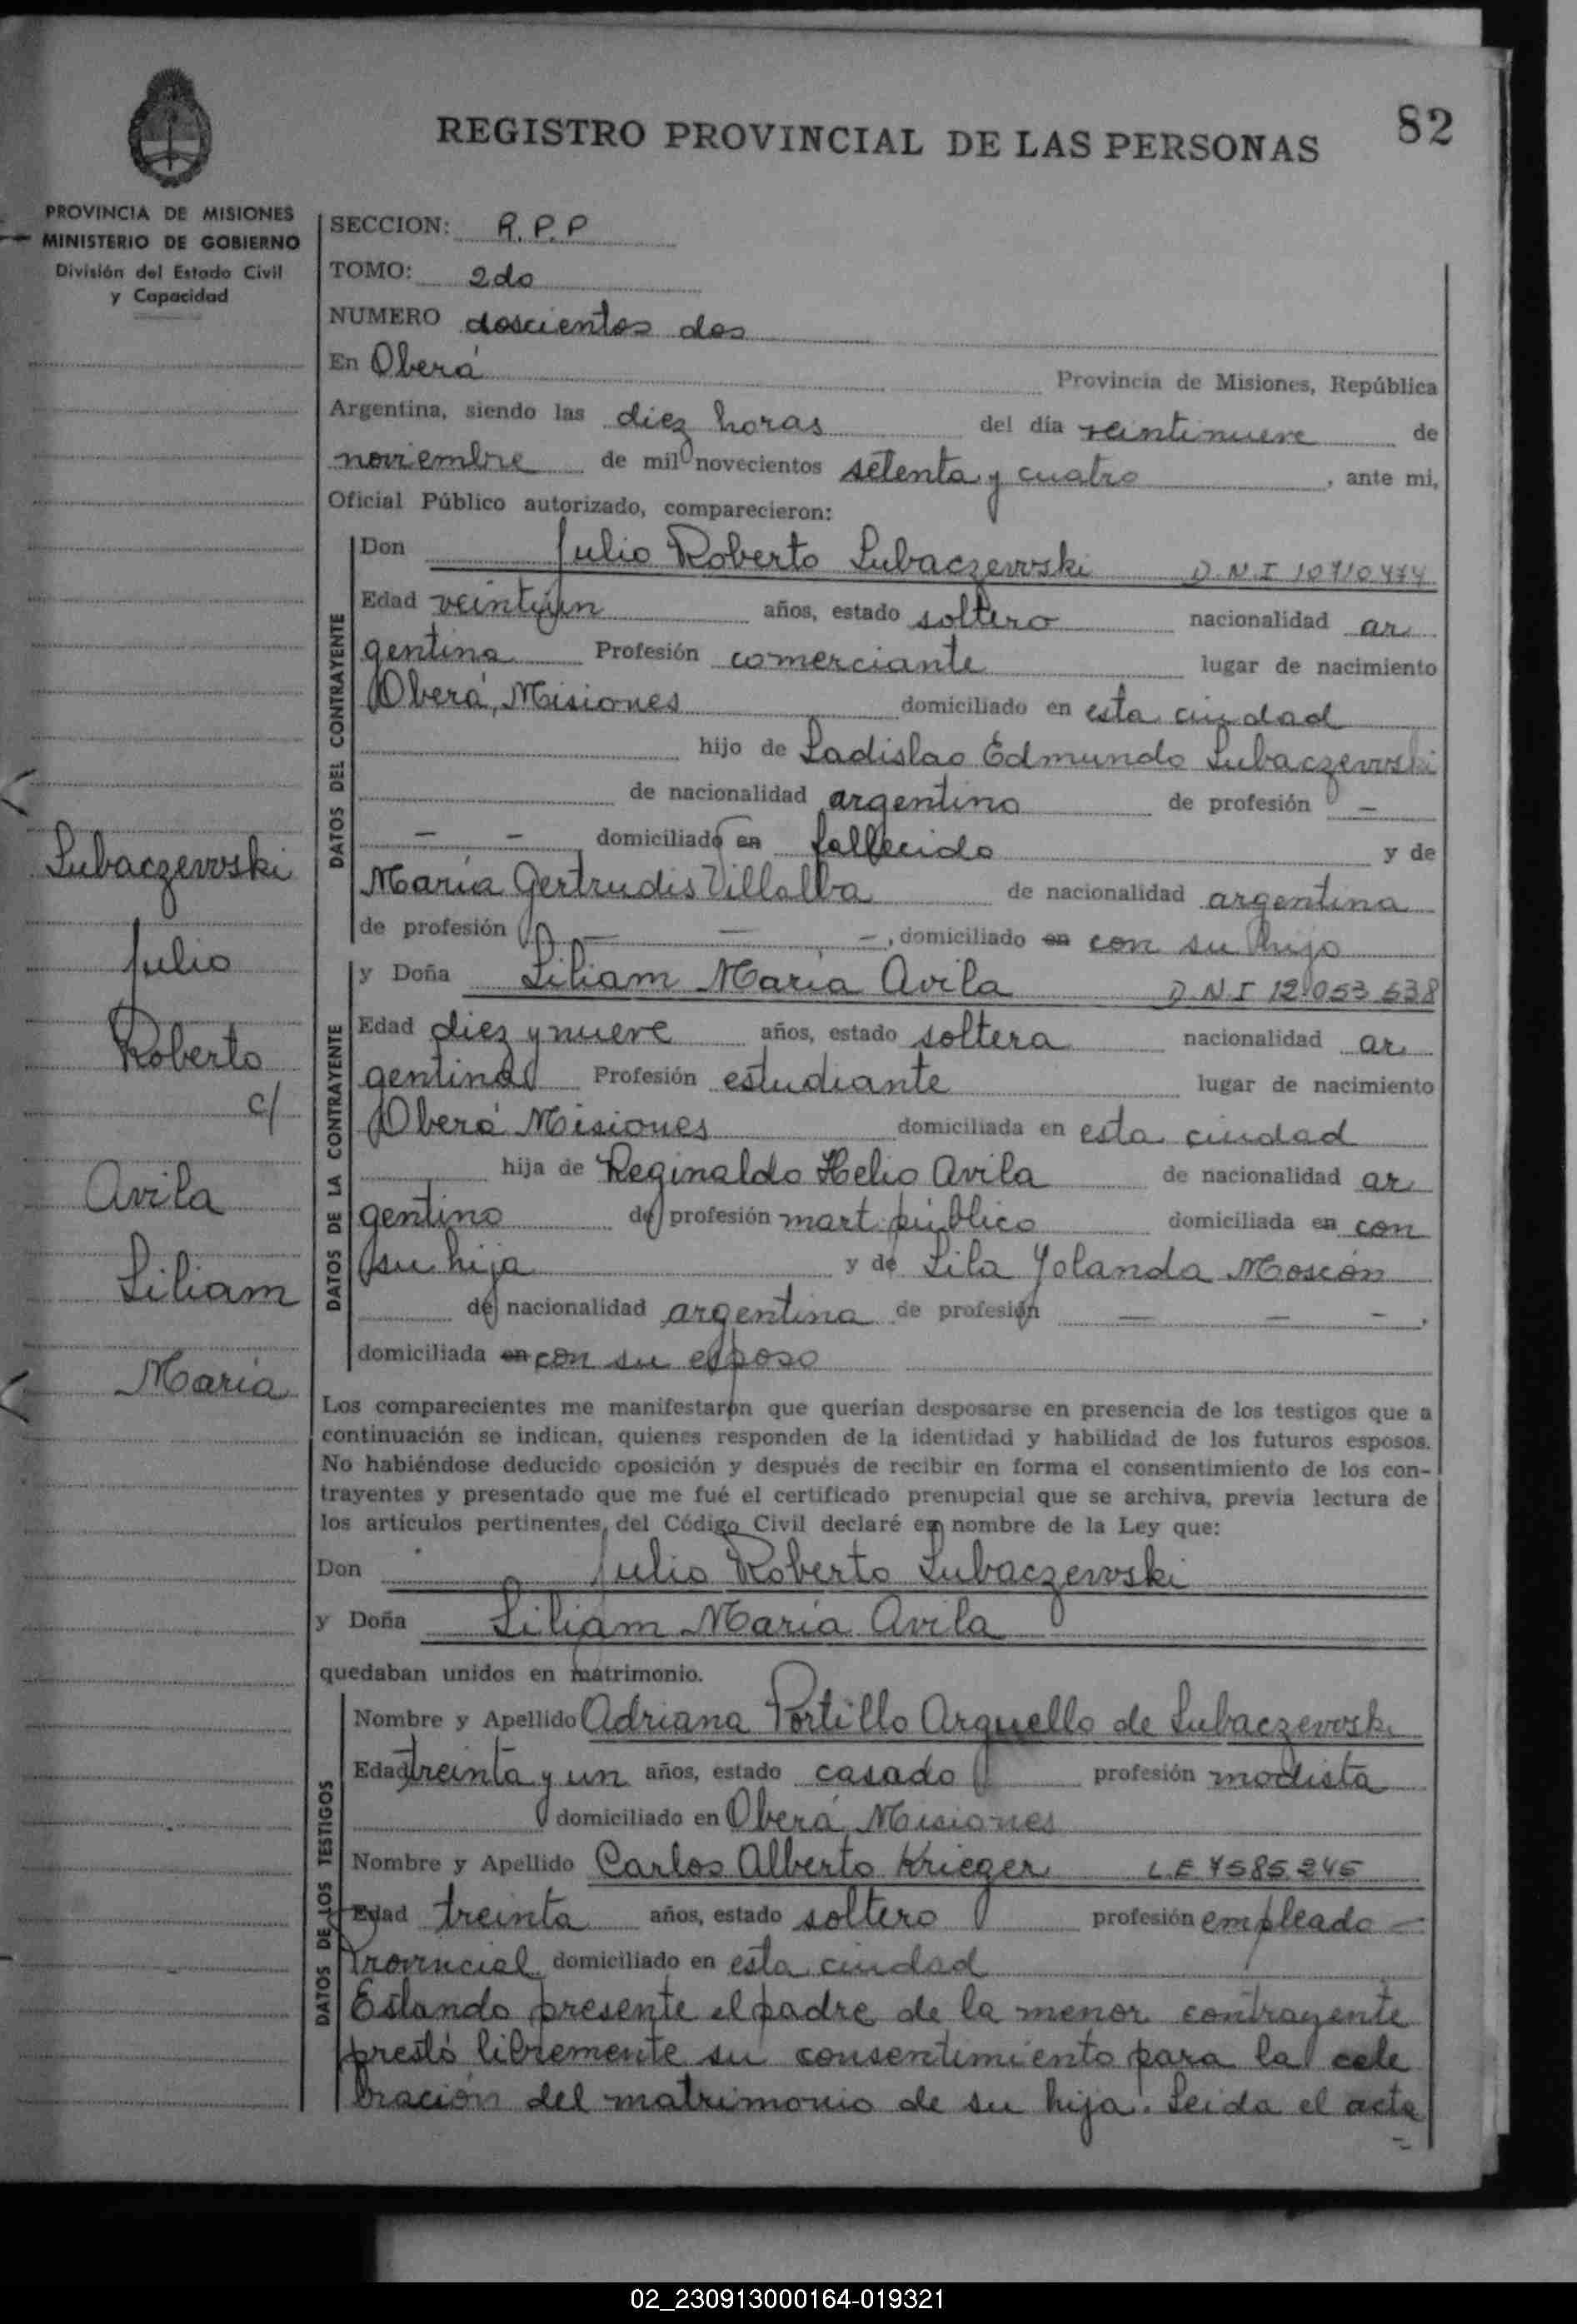 82
REGISTRO PROVINCIAL DE LAS PERSONAS
PROVINCIA DE MISIONES
MINISTERIO DE GOBIERNO
División del Estado Civil
y Capacidad
SECCION: R.P.P
TOMO: 2do
NUMERO doscientos dos
En Oberá Provincia de Misiones, República
Argentina, siendo las diez horas del día veintinueve de
noviembre de mil novecientos setenta y cuatro, ante mi,
Oficial Público autorizado, comparecieron:
DATOS DEL CONTRAYENTE
Don Julio Roberto Lubaczewski D.N.I
Edad veintiyun años, estado soltero nacionalidad ar
gentina Profesión comerciante lugar de nacimiento
Oberá, Misiones domiciliado en esta ciudad
hijo de Ladislao Edmundo Lubaczewski
de nacionalidad argentino de profesión —
— — domiciliado en fallecido y de
María Gertrudis Villalba de nacionalidad argentina
de profesión — — —, domiciliado en con su hijo
DATOS DE LA CONTRAYENTE
y Doña Liliam María Avila D.N.I 12.053.538
Edad diez y nueve años, estado soltera nacionalidad ar
gentina Profesión estudiante lugar de nacimiento
Oberá Misiones domiciliada en esta ciudad
hija de Reginaldo Helio Avila de nacionalidad ar
gentino de profesión mart. público domiciliada en con
su hija y de Lila Yolanda Moscón
de nacionalidad argentina de profesión — — —,
domiciliada en con su esposo
Los comparecientes me manifestaron que querian desposarse en presencia de los testigos que a
continuación se indican, quienes responden de la identidad y habilidad de los futuros esposos.
No habiéndose deducido oposición y después de recibir en forma el consentimiento de los con-
trayentes y presentado que me fué el certificado prenupcial que se archiva, previa lectura de
los artículos pertinentes, del Código Civil declaré en nombre de la Ley que:
Don Julio Roberto Lubaczewski
y Doña Liliam María Avila
quedaban unidos en matrimonio.
DATOS DE LOS TESTIGOS
Nombre y Apellido Adriana Portillo Arguello de Lubaczewski
Edad treinta y un años, estado casado profesión modista
domiciliado en Oberá, Misiones
Nombre y Apellido Carlos Alberto Krieger L.E 7585.245
Edad treinta años, estado soltero profesión empleado —
Provincial domiciliado en esta ciudad
Estando presente el padre de la menor contrayente
prestó libremente su consentimiento para la cele
bración del matrimonio de su hija. Leida el acta
Lubaczewski
Julio
Roberto
c/
Avila
Liliam
María
02_230913000164-019321